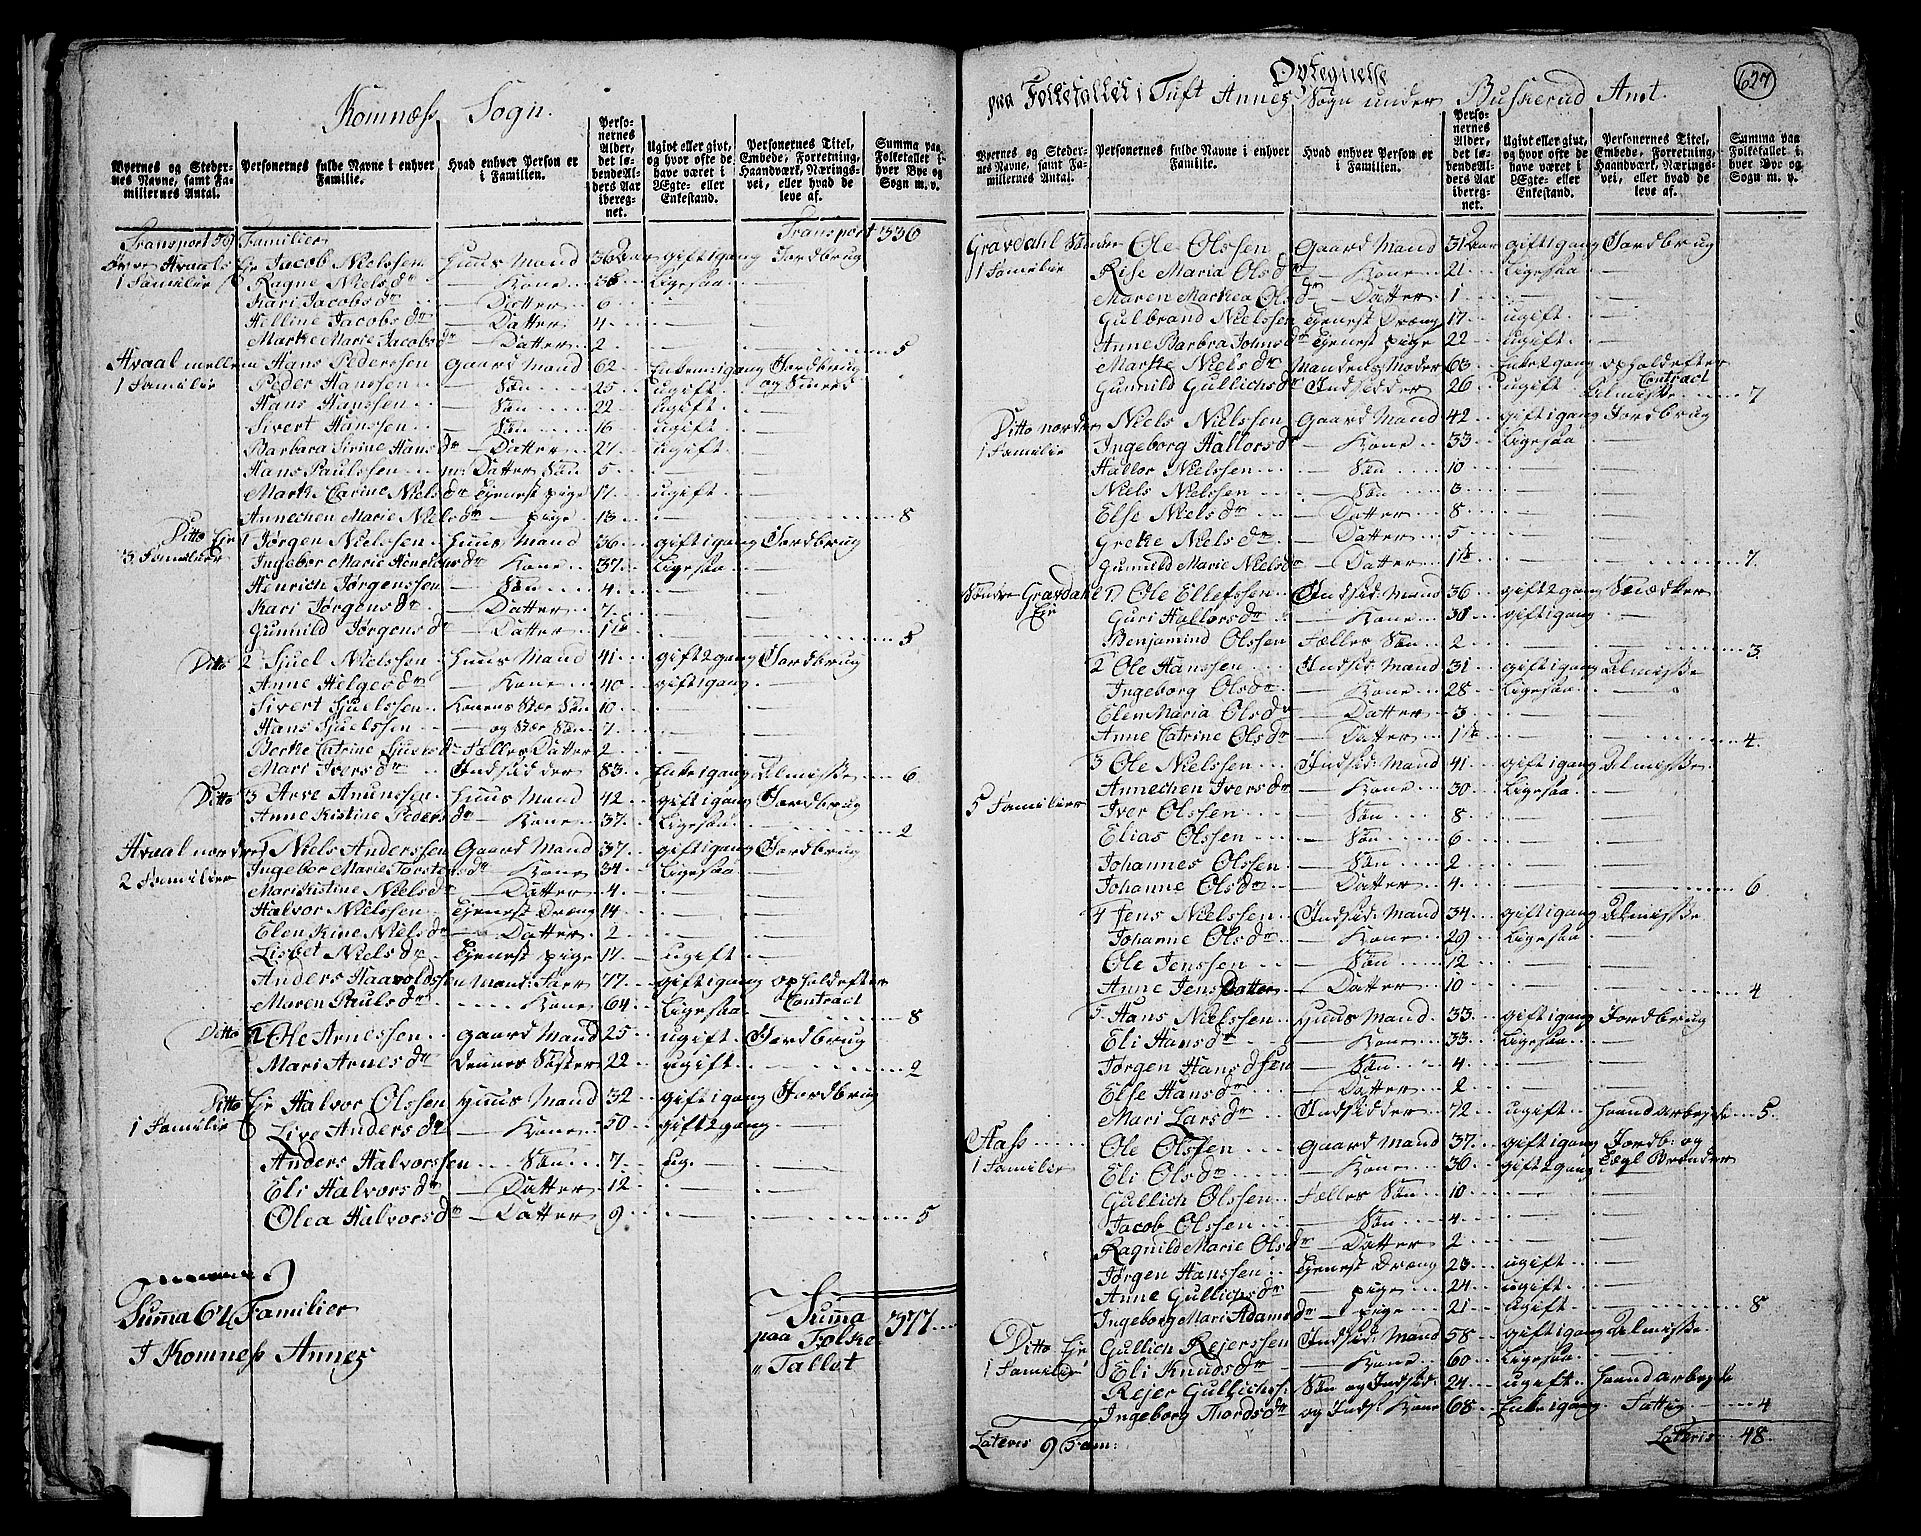 Komnæss Sogn.
Byernes og Stedernes Navne, samt Familiernes Antal.
Personernes fulde Navne i enhver Familie.
Hvad enhver Person er i Familien.
Personernes Alder, det løbende Alders Aar iberegnet.
Ugivt eller givt, og hvor ofte de have været i Ægte- eller Enkestand.
Personernes Titel, Embede, Forretning, Haandværk, Næringsvei, eller hvad de leve af.
Summa paa Folketallet i hver Bye og Sogn m. v.
Transport 59 Familier Transport 336
Øvre Hvaals Eje Jacob Nielssen Huus Mand 36 Aar gift 1 gang Jordbrug
1 Familie Ragne Niels dr — Kone 36 Ligesaa
Kari Jacobs dr — Datter 6
Helline Jacobs dr — Datter 4
Marte Marie Jacobs dr — Datter 2 5
Hvaal mellem Hans Pederssen Gaard Mand 62 Enkem 1 gang Jordbrug
1 Familie Peder Hanssen — Søn 25 ugift og Snerer
Hans Hanssen — Søn 22 ugift
Sivert Hanssen — Søn 16 ugift
Barbara Sirine Hans dr — Datter 27 ugift
Hans Paulssen m: Datter Søn 5
Marte Carine Niels dr Tjenest pige 17 ugift
Annechen Marie Niels dr — pige 13 8
Ditto Eje 1 Jørgen Nielssen Huus Mand 36 gift 1 gang Jordbrug
3 Familier Ingebor Marie Henrichs dr Kone 37 Ligesaa
Hinrich Jørgenssen — Søn 4
Kari Jørgens dr — Datter 7
Gunnild Jørgens dr — Datter 1½ 5
Ditto 2 Sjuel Nielssen Huus Mand 41 gift 2 gang Jordbrug
Anne Helger dr — Kone 40 gift 1 gang
Sivert Sjuelssen Konens Stær Søn 10
Hans Sjuelssen — og Stær Søn 7
Berte Catrine Sjuels dr Fæller Datter 2
Mari Ivers dr Indsidder 83 Enke 1 gang Almisse 6
Ditto 3 Arve Amunssen Huus Mand 42 gift 1 gang Jordbrug
Anne Kistine Peders dr — Kone 37 Ligesaa 2
Hvaal nordre 1 Niels Anderssen Gaard Mand 37 gift 1 gang Jordbrug
2 Familier Ingebor Marie Torstens dr — Kone 34 Ligesaa
Mari Kistine Niels dr — Datter 4
Halvor Nielssen Tjenest Dræng 14
Elen Kine Niels dr — Datter 2
Lisbet Niels dr Tjenest pige 17 ugift
Anders Haavoldssen Mand: Faer 77 gift 1 gang ophold efter
Maren Pauls dr Kone 64 Ligesaa Contract 8
Ditto 2 Ole Arnessen gaard Mand 25 ugift Jordbrug
Mari Arnes dr Dennes Søster 22 ugift 2
Ditto Eje Halvor Olssen Huus Mand 32 gift 1 gang Jordbrug
1 Familie Live Anders dr — Kone 50 gift 2 gang
Anders Halvorssen Søn 7 ug.
Eli Halvors dr — Datter 12
Olea Halvors dr — Datter 9 5
Summa 64 Familier Summa 377
I Komness Annex paa Folke Tallet
627
Optegnelse
paa Folketallet i Tuft Annex Sogn under Buskerud Amt.
Byernes og Stedernes Navne, samt Familiernes Antal.
Personernes fulde Navne i enhver Familie.
Hvad enhver Person er i Familien.
Personernes Alder, det løbende Alders Aar iberegnet.
Ugivt eller givt, og hvor ofte de have været i Ægte- eller Enkestand.
Personernes Titel, Embede, Forretning, Haandværk, Næringsvei, eller hvad de leve af.
Summa paa Folketallet i hver Bye og Sogn m. v.
Gravdahl Søndre Ole Olssen Gaard Mand 31 Aar gift 1 gang Jordbrug
1 Familie Rise Maria Ols dr — Kone 21 Ligesaa
Maren Marthea Ols dr — Datter 1
Gulbrand Nielssen Tjenest Dræng 17 ugift
Anne Barbra Johns dr Tjenest pige 22 ugift
Marte Niels dr Mandens Moder 63 Enke 1 gang ophold efter Contract
Gunnild Gullichs dr Indsidder 26 ugift Almisse 7
Ditto nordre Niels Nielssen Gaard Mand 42 gift 1 gang Jordbrug
1 Familie Ingeborg Hallors dr — Kone 33 Ligesaa
Hallor Nielssen — Søn 10
Niels Nielssen — Søn 3
Else Niels dr — Datter 8
Grete Niels dr — Datter 5
Gunnild Marie Niels dr — Datter 1½ 7
Søndre Gravdahl Eje 1 Ole Ellefssen Indsid Mand 36 gift 2 gang Snædker
Guri Hallors dr — Kone 38 gift 1 gang
Benjamind Olssen Fæller Søn 2 3
2 Ole Hanssen Indsid Mand 31 gift 1 gang Almisse
Ingeborg Ols dr — Kone 28 Ligesaa
Elen Maria Ols dr — Datter 3
Anne Catrine Ols dr — Datter 1½ 4
3 Ole Nielssen Indsid Mand 41 gift 1 gang Almisse
Annechen Ivers dr — Kone 30 Ligesaa
5 Familier Iver Olssen — Søn 8
Elias Olssen — Søn 6
Johannes Olssen — Søn 2
Johanne Ols dr — Datter 4 6
4 Jens Nielssen Indsid: Mand 34 gift 1 gang Almisse
Johanne Ols dr — Kone 29 Ligesaa
Ole Jenssen — Søn 12
Anne Jens Datter Datter 10 4
5 Hans Nielssen Huus Mand 33 gift 1 gang Jordbrug
Eli Hans dr — Kone 33 Ligesaa
Jørgen Hanssen — Søn 4
Else Hans dr — Datter 2
Mari Lars dr Indsidder 72 ugift Haand arbejde 5
Aass Ole Olssen Gaard Mand 37 gift 1 gang Jordb: og
1 Familie Eli Ols dr — Kone 36 gift 2 gang Tægl Brænder
Gullich Olssen Fæller Søn 10
Jacob Olssen — Søn 4
Ragnild Marie Ols dr — Datter 2
Jørgen Hanssen Tjenest Dræng 23 ugift
Anne Gullichs dr — pige 24 ugift
Ingeborg Mari Adams dr — pige 21 ugift 8
Ditto Eje Gullich Rejerssen Indsid: Mand 58 gift 1 gang Almisse
1 Familie Eli Knuds dr — Kone 60 Ligesaa
Rejer Gullichs. Søn og Indsid: 24 ugift Haand arbejde
Ingeborg Thords dr og Inds: Kone 68 Enke 1 gang Fattig 4
Lateris 9 Fam: Lateris 48